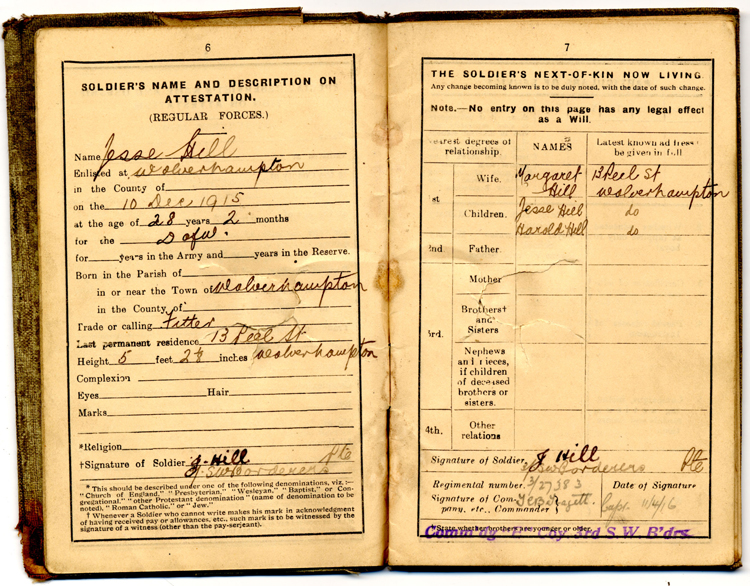 6
SOLDIER'S NAME AND DESCRIPTION ON
ATTESTATION.
(REGULAR FORCES.)
Name Jesse Hill
Enlisted at Wolverhampton
in the County of
on the 10 Dec 1915
at the age of 28 years 2 months
for the
for years in the Army and years in the Reserve.
Born in the Parish of
in or near the Town of Wolverhampton
in the County of
Trade or calling Fitter
Last permanent residence 13 Peel St
Height 5 feet 2 inches Wolverhampton
Complexion
Eyes Hair
Marks
*Religion
†Signature of Soldier J. Hill Pte
S.W. Borderers
* This should be described under one of the following denominations, viz. :—
"Church of England," "Presbyterian," "Wesleyan," "Baptist," or Con-
gregational," "other Protestant denomination" (name of denomination to be
noted), "Roman Catholic," or "Jew."
† Whenever a Soldier who cannot write makes his mark in acknowledgment
of having received pay or allowances, etc., such mark is to be witnessed by the
signature of a witness (other than the pay-serjeant).
7
THE SOLDIER'S NEXT-OF-KIN NOW LIVING.
Any change becoming known is to be duly noted, with the date of such change.
Note.—No entry on this page has any legal effect
as a Will.
earest degrees of
relationship.
NAMES
Latest known address
be given in full
st
Wife.
Margaret
Hill
13 Peel St
Wolverhampton
Children.
Jesse Hill do
Harold Hill do
2nd Father.
Mother
3rd.
Brothers†
and
Sisters
Nephews
and nieces,
if children
of deceased
brothers or
sisters.
4th.
Other
relations
Signature of Soldier J Hill Pte
S.W. Borderers
Regimental number 3/27383 Date of Signature
Signature of Com-
pany, etc., Commander Capt. 11/4/16
*State whether brothers are younger or older.
Comm'g Coy 3rd S. W. B'drs